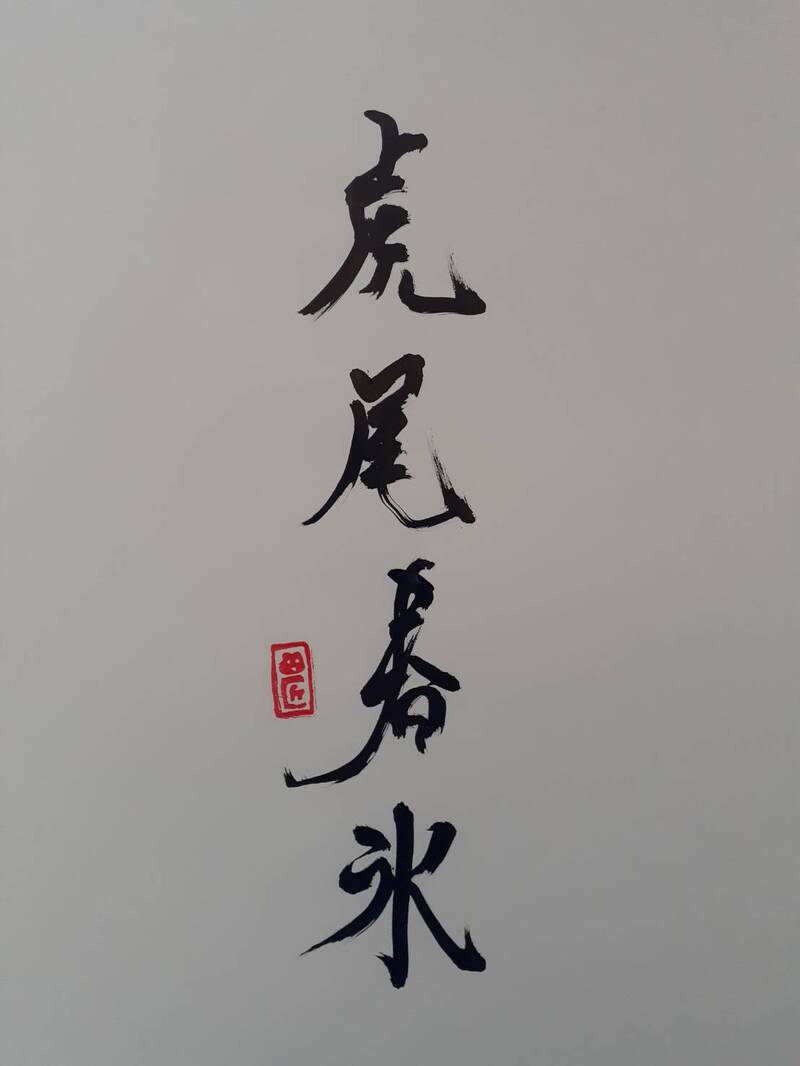 虎尾春氷